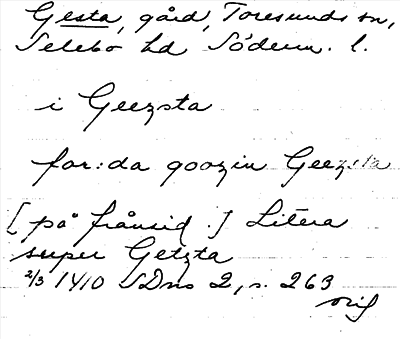 Gesta, gård, Toresunds sn,
Selebo hd Söderm. l.
i Geezsta
for:da goozin Geezsta
[på frånsid.] Litera
super Getzta
2/3 1410 SDns 2, s. 263
orig